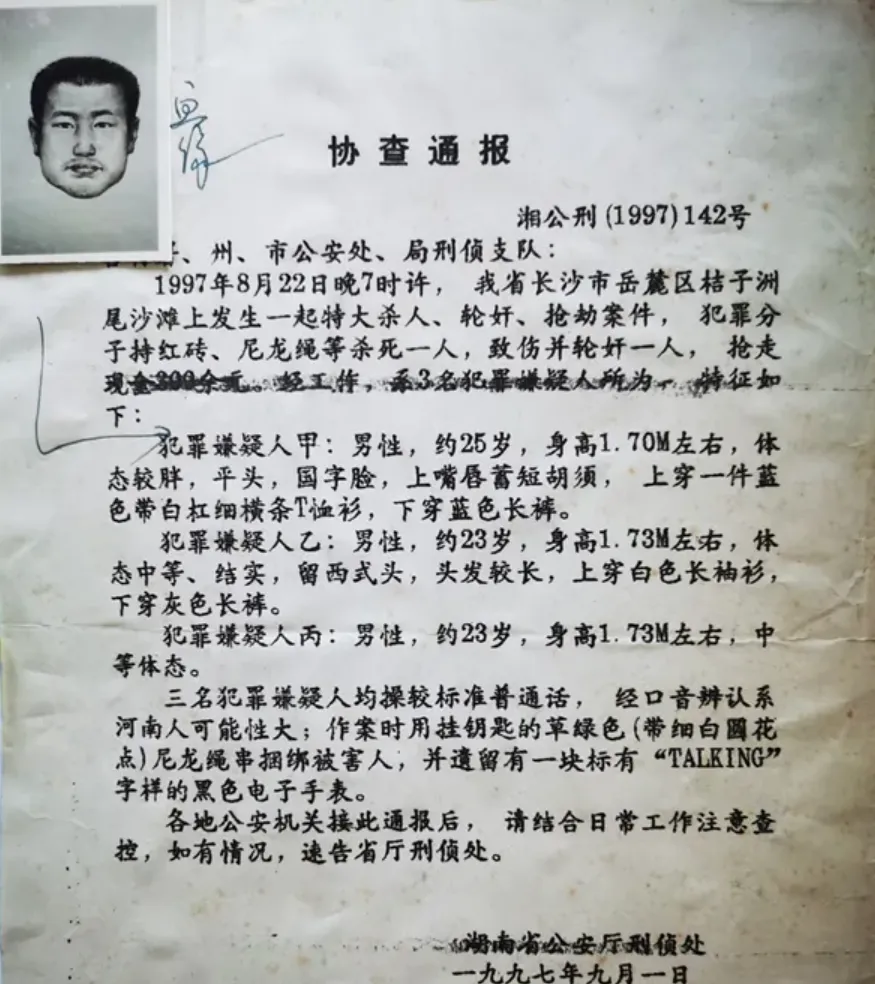 协查通报
湘公刑(1997)142号
、州、市公安处、局刑侦支队:
1997年8月22日晚7时许, 我省长沙市岳麓区桔子洲
尾沙滩上发生一起特大杀人、轮奸、抢劫案件, 犯罪分
子持红砖、尼龙绳等杀死一人,致伤并轮奸一人, 抢走
现金300余元。经工作,系3名犯罪嫌疑人所为, 特征如
下:
犯罪嫌疑人甲:男性,约25岁,身高1.70M左右,体
态较胖,平头,国字脸,上嘴唇蓄短胡须, 上穿一件蓝
色带白杠细横条T恤衫,下穿蓝色长裤。
犯罪嫌疑人乙:男性,约23岁,身高1.73M左右,体
态中等、结实,留西式头,头发较长,上穿白色长袖衫,
下穿灰色长裤。
犯罪嫌疑人丙:男性,约23岁,身高1.73M左右,中
等体态。
三名犯罪嫌疑人均操较标准普通话, 经口音辨认系
河南人可能性大;作案时用挂钥匙的草绿色(带细白圆花
点)尼龙绳串捆绑被害人,并遗留有一块标有“TALKING”
字样的黑色电子手表。
各地公安机关接此通报后, 请结合日常工作注意查
控,如有情况,速告省厅刑侦处。
湖南省公安厅刑侦处
一九九七年九月一日